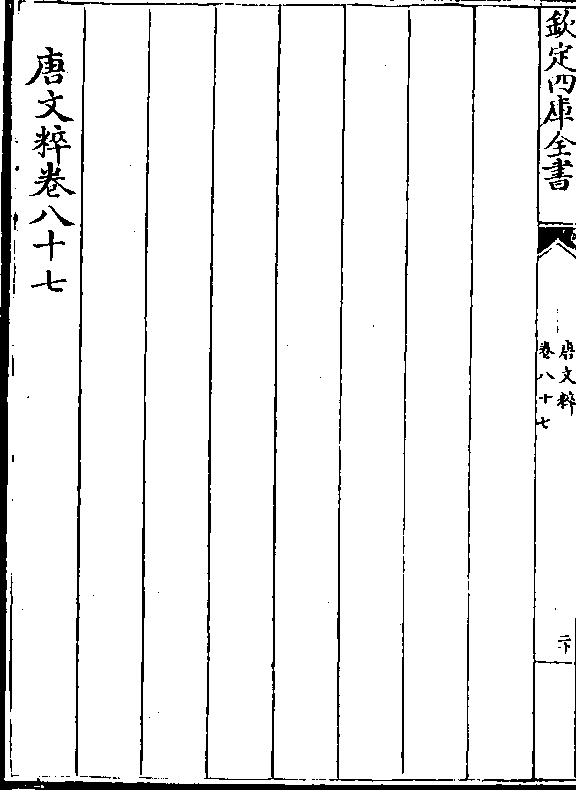 欽定四庫全書
唐文粹
卷八十七
唐文粹卷八十七